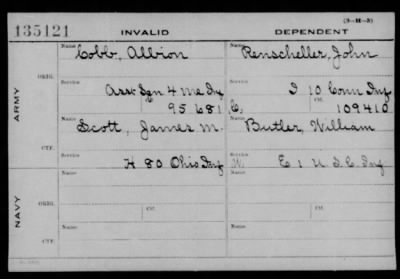 135121
INVALID
DEPENDENT
(3-H-3)
ARMY
ORIG.
Name Cobb, Albion
Name Renscheller, John
Service Asst Sgn 4 Me Inf
Service I 10 Conn Inf
C 95681
Ctf. 109410
CTF.
Name Scott, James M.
C, Name Butler, William
Service H 80 Ohio Inf
Service W E 1 U.S.C. Inf
NAVY
ORIG.
Name
Name
Service
Ctf.
Service
Ctf.
CTF.
Name
Name
Service
Service